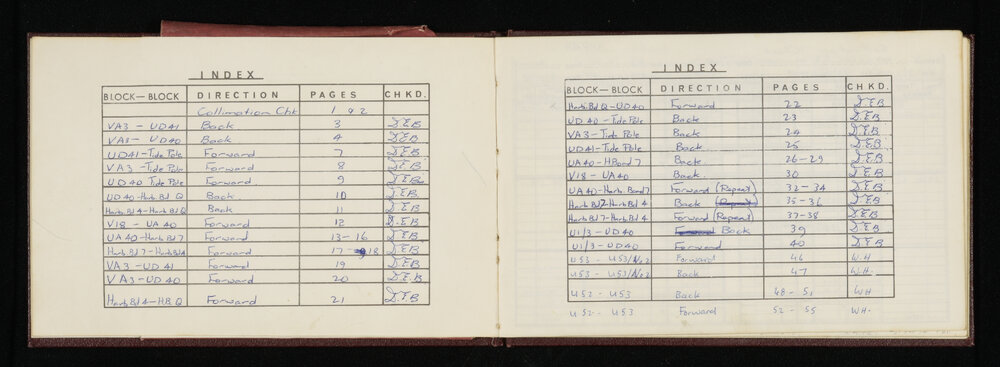 INDEX
BLOCK—BLOCK DIRECTION PAGES CHKD.
Collimation Chk 1 & 2
VA3 - UD41 Back 3 D.E.B
VA3 - UD40 Back 4 D.E.B
UD41-Tide Pole Forward 7 D.E.B
VA3 -Tide Pole Forward 8 D.E.B
UD40 Tide Pole Forward 9 D.E.B
UD40-Harb. Bd Q Back 10 D.E.B
Harb Bd 4-Harb Bd Q Back 11 D.E.B
V18 - UA40 Forward 12 D.E.B
UA40-Harb Bd 7 Forward 13-16 D.E.B
Harb Bd 7-Harb Bd 4 Forward 17-18 D.E.B
VA3 - UD41 Forward 19 D.E.B
VA3-UD40 Forward 20 D.E.B
Harb Bd 4-HB Q Forward 21 D.E.B
INDEX
BLOCK—BLOCK DIRECTION PAGES CHKD.
Harb Bd Q-UD40 Forward 22 D.E.B
UD40-Tide Pole Back 23 D.E.B
VA3-Tide Pole Back 24 D.E.B
UD41-Tide Pole Back 25 D.E.B
UA40-HBord 7 Back 26-29 D.E.B
V18 - UA40 Back 30 D.E.B
UA40-Harb. Bord 7 Forward (Repeat) 32-34 D.E.B
Harb Bd 7-Harb Bd 4 Back (Repeat) 35-36 D.E.B
Harb Bd 7-Harb Bd 4 Forward (Repeat) 37-38 D.E.B
U1/3-UD40 Forward Back 39 D.E.B
U1/3-UD40 Forward 40 D.E.B
U53 - U53/No2 Forward 46 W.H
U53 - U53/No2 Back 47 W.H.
U52 - U53 Back 48 - 51 WH
U52 - U53 Forward 52 - 55 WH.